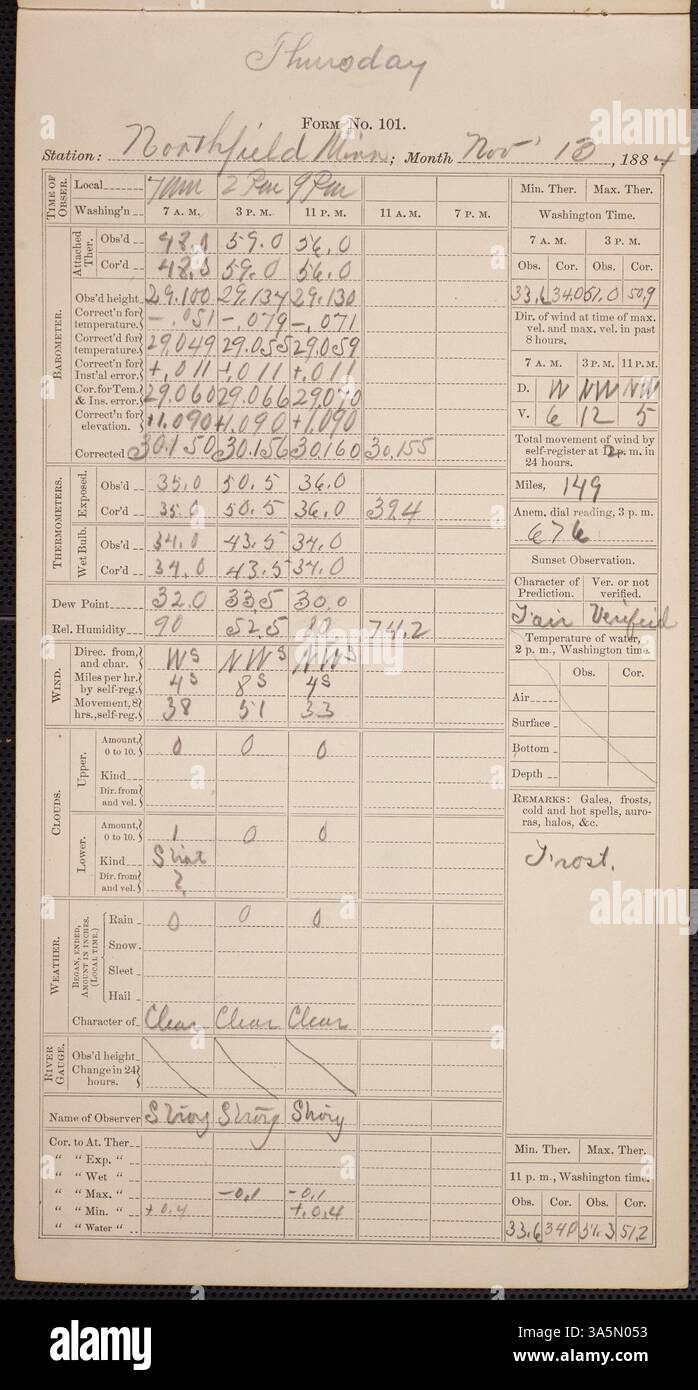 Thursday
Form No. 101.
Station: Northfield Minn; Month Nov 13, 1884
TIME OF OBSER. Local 7 am 2 Pm 9 Pm
Washing'n 7 A. M. 3 P. M. 11 P. M. 11 A. M. 7 P. M.
BAROMETER.
Attached Ther. Obs'd 48.0 59.0 56.0
Cor'd 48.0 59.0 56.0
Obs'd height 29.100 29.134 29.130
Correct'n for temperature. -.051 -.079 -.071
Correct'd for temperature. 29.049 29.055 29.059
Correct'n for Inst'al error. +.011 +.011 +.011
Cor. for Tem. & Ins. error. 29.060 29.066 29.070
Correct'n for elevation. +1.090 +1.090 +1.090
Corrected 30.150 30.156 30.160 30.155
THERMOMETERS.
Exposed. Obs'd 35.0 50.5 36.0
Cor'd 35.0 50.5 36.0 39.4
Wet Bulb. Obs'd 34.0 43.5 34.0
Cor'd 34.0 43.5 34.0
Dew Point 32.0 33.5 30.0
Rel. Humidity 90 52.5 74.2
WIND.
Direc. from, and char. W s NW s NW s
Miles per hr. by self-reg. 4 s 8 s 4 s
Movement, 8 hrs., self-reg. 38 51 33
CLOUDS.
Upper. Amount, 0 to 10. 0 0 0
Kind
Dir. from and vel.
Lower. Amount, 0 to 10. 1 0 0
Kind Strat
Dir. from and vel. ?
WEATHER.
BEGAN, ENDED, AMOUNT IN INCHES. (LOCAL TIME.)
Rain 0 0 0
Snow.
Sleet
Hail
Character of Clear Clear Clear
RIVER GAUGE.
Obs'd height
Change in 24 hours.
Name of Observer
Cor. to At. Ther
" " Exp. "
" " Wet "
" " Max. " -0.1 -0.1
" " Min. " +0.4 +0.4
" " Water "
Min. Ther. Max. Ther.
Washington Time.
7 A. M. 3 P. M.
Obs. Cor. Obs. Cor.
33.6 34.0 51.0 50.9
Dir. of wind at time of max. vel. and max. vel. in past 8 hours.
7 A. M. 3 P. M. 11 P. M.
D. W NW NW
V. 6 12 5
Total movement of wind by self-register at 12 p. m. in 24 hours.
Miles, 149
Anem. dial reading, 3 p. m.
676
Sunset Observation.
Character of Prediction. Ver. or not verified.
Fair Verified
Temperature of water, 2 p. m., Washington time.
Obs. Cor.
Air
Surface
Bottom
Depth
REMARKS: Gales, frosts, cold and hot spells, auroras, halos, &c.
Frost.
Min. Ther. Max. Ther.
11 p. m., Washington time.
Obs. Cor. Obs. Cor.
33.6 34.0 51.3 51.2
alamy
alamy
Image ID: 3A5N053
www.alamy.com